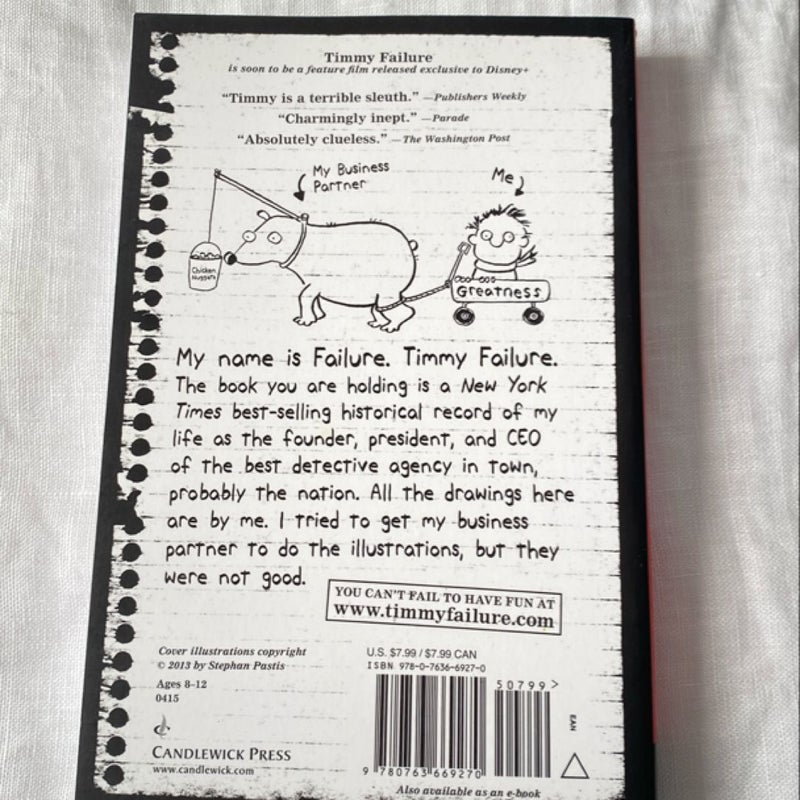 Timmy Failure
is soon to be a feature film released exclusive to Disney+
“Timmy is a terrible sleuth.” —Publishers Weekly
“Charmingly inept.” —Parade
“Absolutely clueless.” —The Washington Post
My Business
Partner
Me
Chicken
Nuggets
Greatness
My name is Failure. Timmy Failure.
The book you are holding is a New York
Times best-selling historical record of my
life as the founder, president, and CEO
of the best detective agency in town,
probably the nation. All the drawings here
are by me. I tried to get my business
partner to do the illustrations, but they
were not good.
YOU CAN'T FAIL TO HAVE FUN AT
www.timmyfailure.com
Cover illustrations copyright
© 2013 by Stephan Pastis
Ages 8–12
0415
CANDLEWICK PRESS
www.candlewick.com
U.S. $7.99 / $7.99 CAN
ISBN 978-0-7636-6927-0
50799>
EAN
9 780763 669270
Also available as an e-book